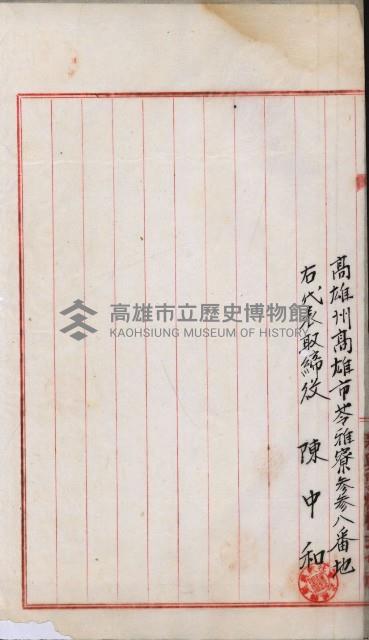 高雄州高雄市苓雅寮参参八番地
右代表取締役 陳中和
高雄市立歷史博物館
KAOHSIUNG MUSEUM OF HISTORY